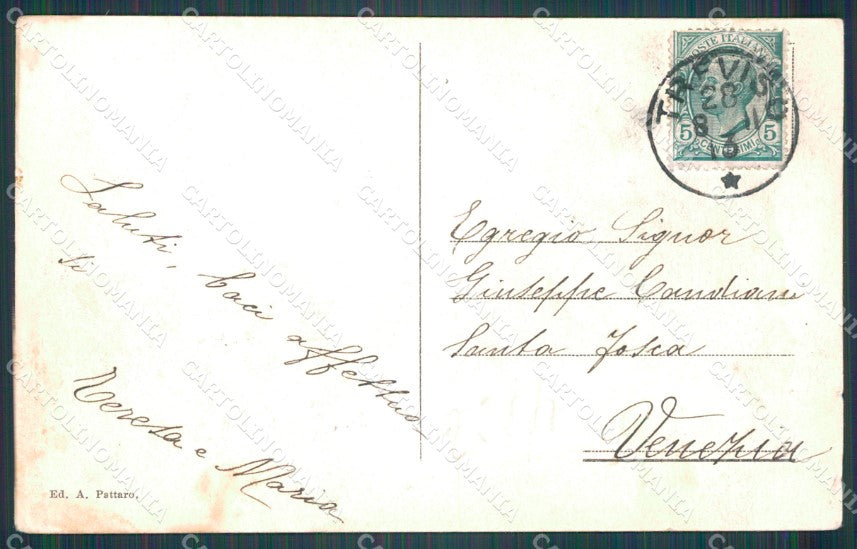 Saluti, baci affettuo
si
Teresa e Maria
Ed. A. Pattaro.
POSTE ITALIANE
5 5
CENTESIMI
TREVISO
28
8 11
13
Egregio Signor
Giuseppe Candiani
Santa Fosca
Venezia
CARTOLINOMANIA